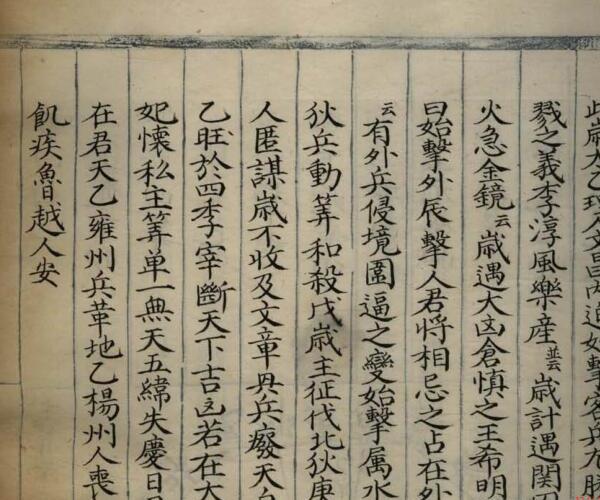 此歲太乙理人文昌內迫始擊客兵
戮之義李淳風樂産並云歲計遇関
火急金鏡云歲遇大凶倉慎之王希明
曰始擊外辰擊人君將相忌之占在外
云有外兵侵境圍逼之變始擊属水
狄兵動筭和殺戊歲主征伐北狄庚
人匿謀歲不收及文章丹兵癈天
乙旺於四季宰斷天下吉凶若在大
妃懷私主筭单一無天五緯失慶日
在君天乙雍州兵革地乙楊州人喪
飢疾魯越人安